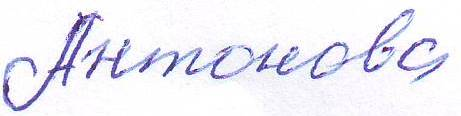 Антонова